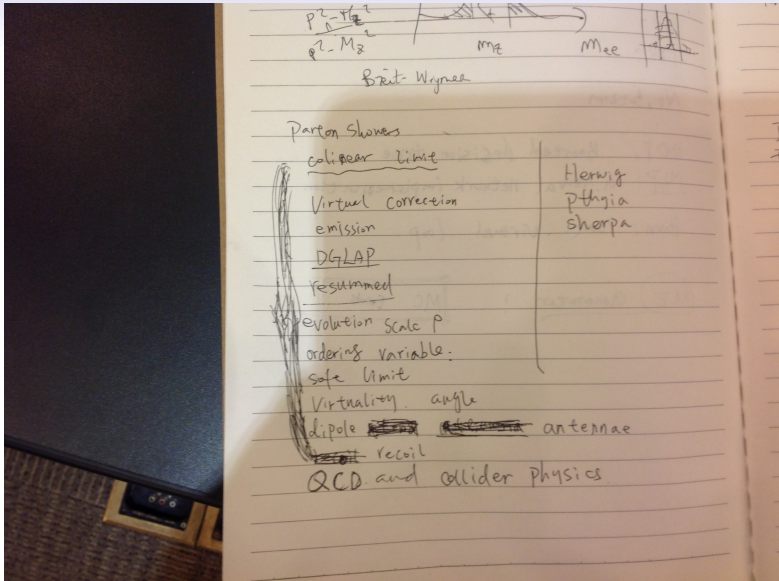 p²-M_z²
p²-M_z²
m_z
M_ee
Breit-Wigner
Parton Showers
colinear limit
Virtual Correction
emission
DGLAP
resummed
evolution scale p
ordering variable:
soft limit
Virtuality. angle
dipole antennae
recoil
QCD and collider physics
Herwig
pthgia
sherpa